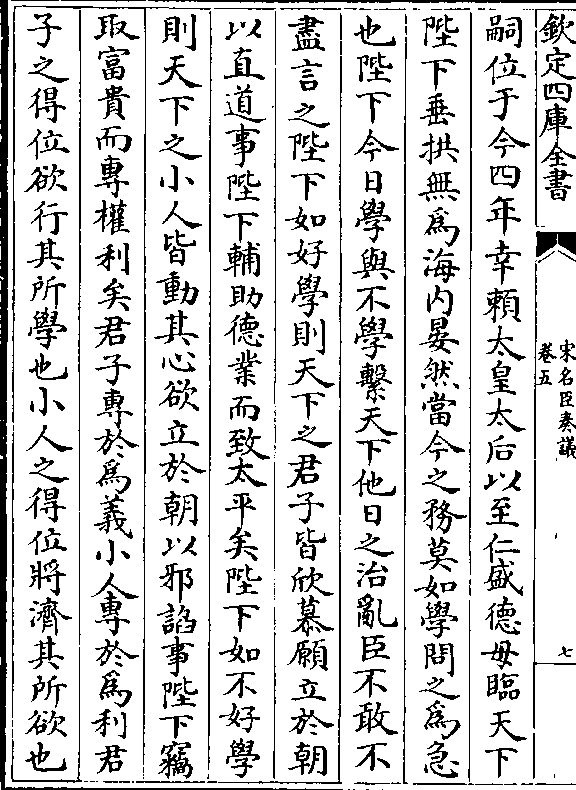 欽定四庫全書
宋名臣奏議
卷五
七
嗣位于今四年幸賴太皇太后以至仁盛德母臨天下
陛下垂拱無為海内晏然當今之務莫如學問之為急
也陛下今日學與不學繫天下他日之治亂臣不敢不
盡言之陛下如好學則天下之君子皆欣慕願立於朝
以直道事陛下輔助德業而致太平矣陛下如不好學
則天下之小人皆動其心欲立於朝以邪謟事陛下竊
取富貴而專權利矣君子專於為義小人專於為利君
子之得位欲行其所學也小人之得位將濟其所欲也